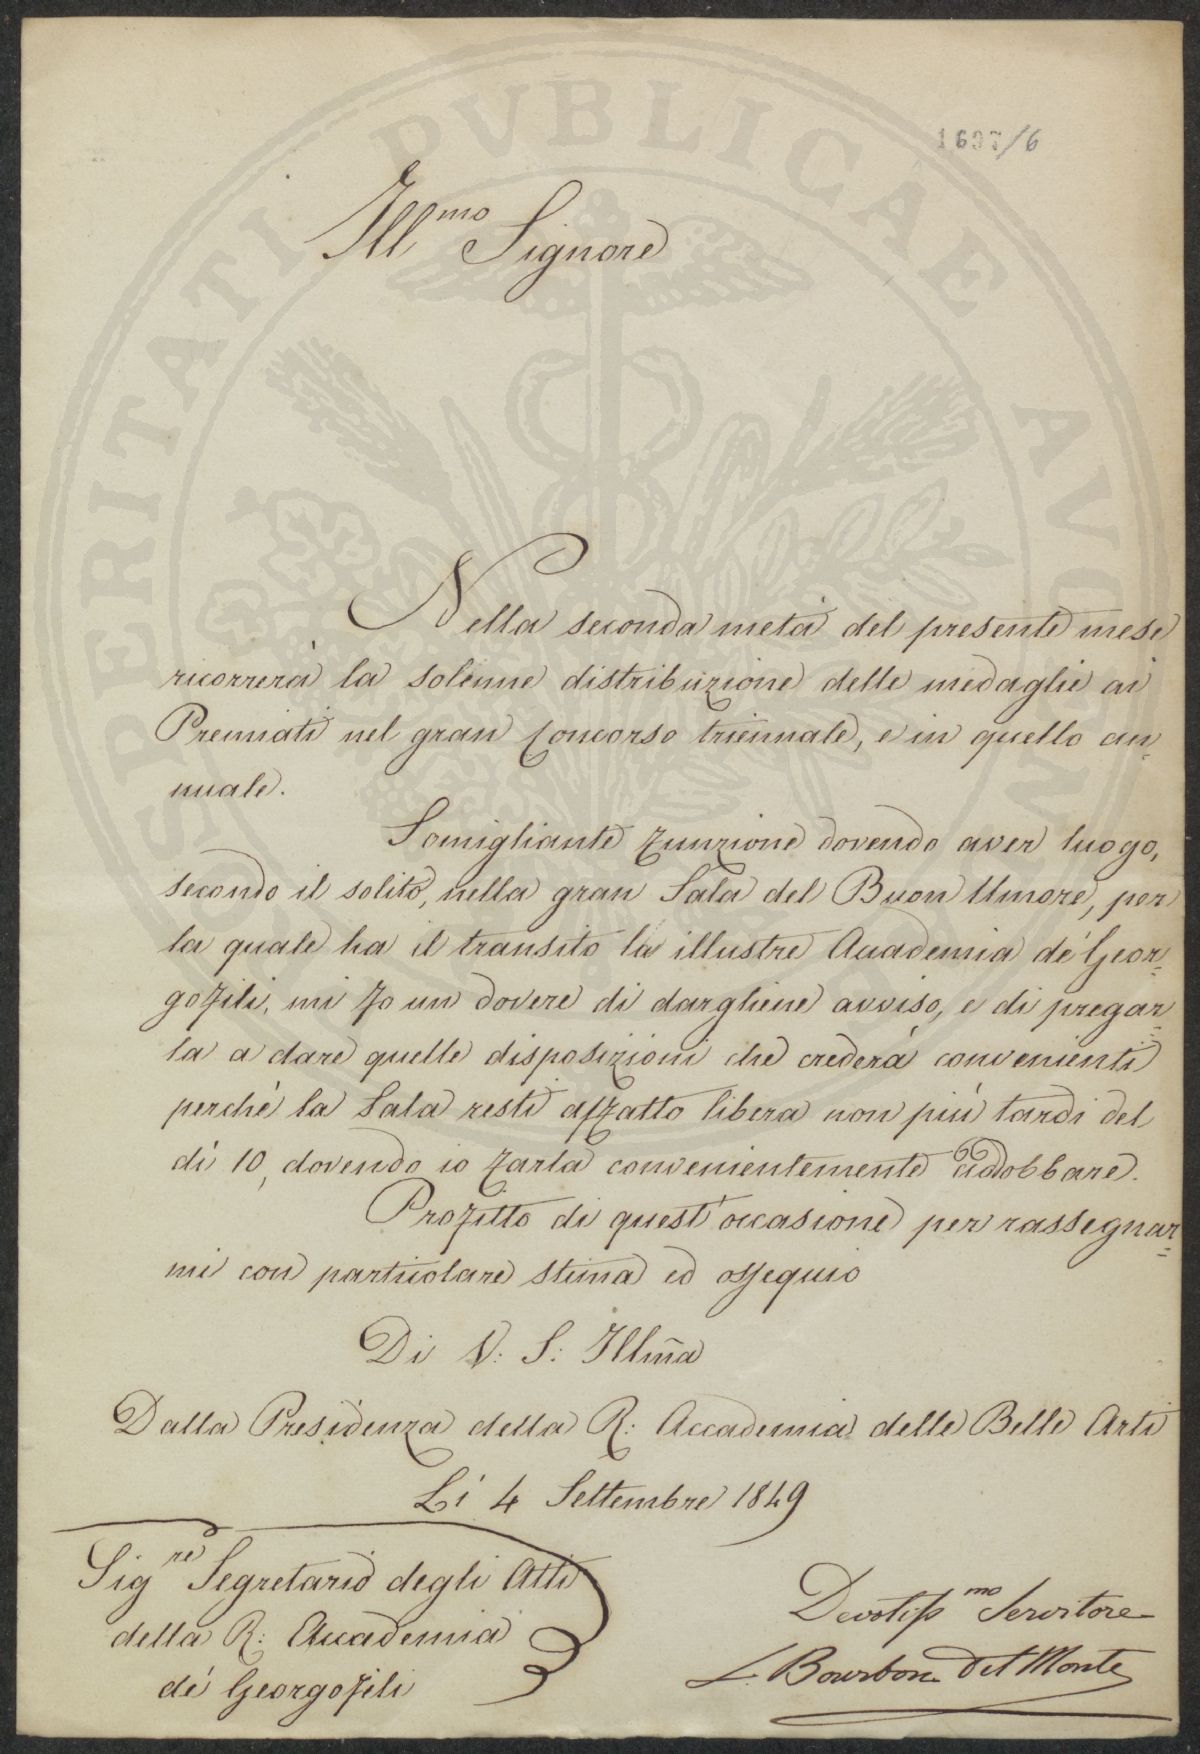 PROSPERITATI PVBLICAE AVGENDAE
1697/6
Ill.mo Signore
Nella seconda metà del presente mese
ricorrerà la solenne distribuzione delle medaglie ai
Premiati nel gran Concorso triennale, e in quello an-
nuale.
Somigliante funzione dovendo aver luogo,
secondo il solito, nella gran Sala del Buon Umore, per
la quale ha il transito la illustre Accademia de' Geor=
gofili, mi fo un dovere di dargliene avviso, e di pregar=
la a dare quelle disposizioni che crederà convenienti
perchè la Sala resti affatto libera non più tardi del
dì 10, dovendo io farla convenientemente addobbare.
Profitto di quest'occasione per rassegnar=
mi con particolare stima ed ossequio
Di V: S: Illma
Dalla Presidenza della R: Accademia delle Belle Arti
Li 4 Settembre 1849
Sig.re Segretario degli Atti
della R: Accademia
de' Georgofili
Devotiss.mo Servitore
L. Bourbon Del Monte